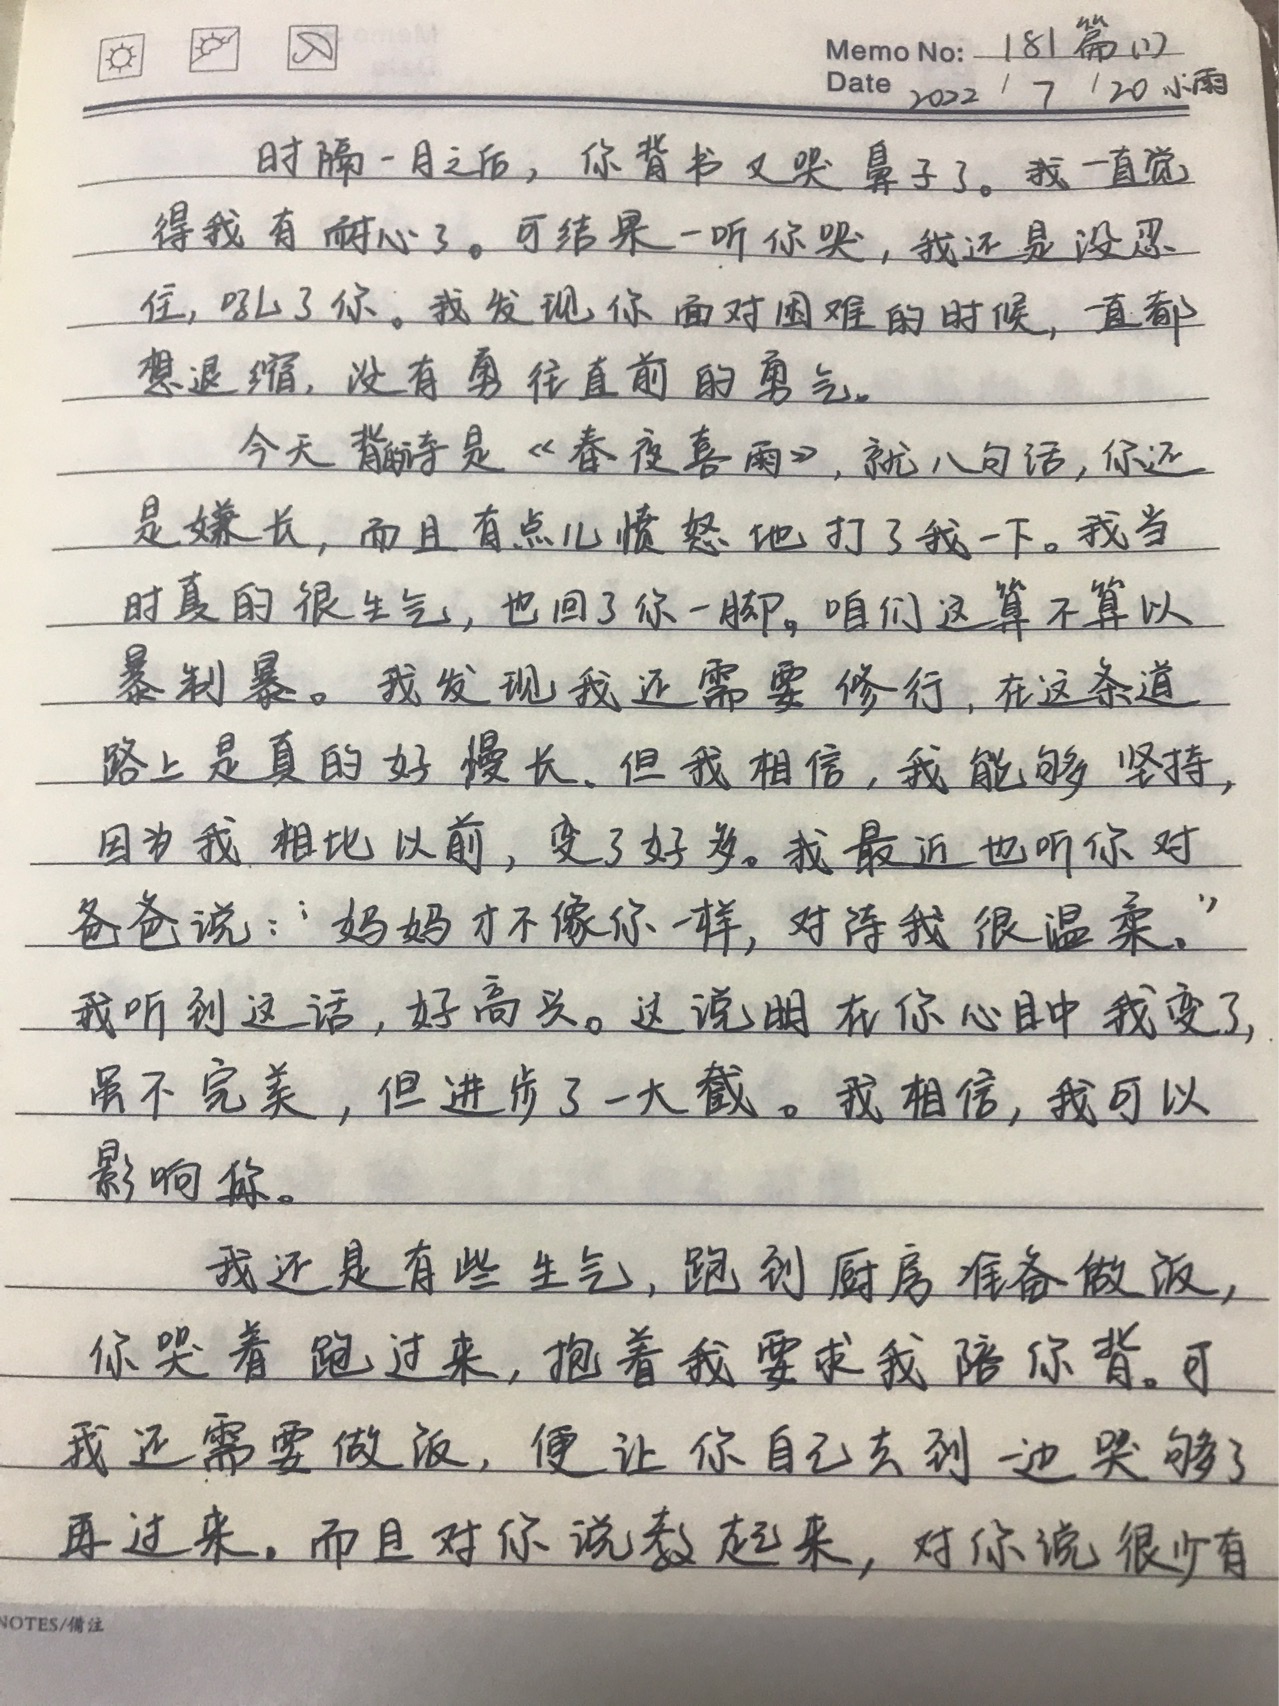 Memo No: 181篇(1)
Date 2022/7/20 小雨
时隔一月之后，你背书又哭鼻子了。我一直觉
得我有耐心了。可结果一听你哭，我还是没忍
住，吼了你。我发现你面对困难的时候，一直都
想退缩，没有勇往直前的勇气。
今天背的诗是《春夜喜雨》，就八句话，你还
是嫌长，而且有点儿愤怒地打了我一下。我当
时真的很生气，也回了你一脚。咱们这算不算以
暴制暴。我发现我还需要修行，在这条道
路上是真的好慢长、但我相信，我能够坚持，
因为我相比以前，变了好多。我最近也听你对
爸爸说：“妈妈才不像你一样，对待我很温柔。”
我听到这话，好高兴。这说明在你心目中我变了，
虽不完美，但进步了一大截。我相信，我可以
影响你。
我还是有些生气，跑到厨房准备做饭，
你哭着跑过来，抱着我要求我陪你背。可
我还需要做饭，便让你自己去到一边哭够了
再过来。而且对你说教起来，对你说很少有
NOTES/備注